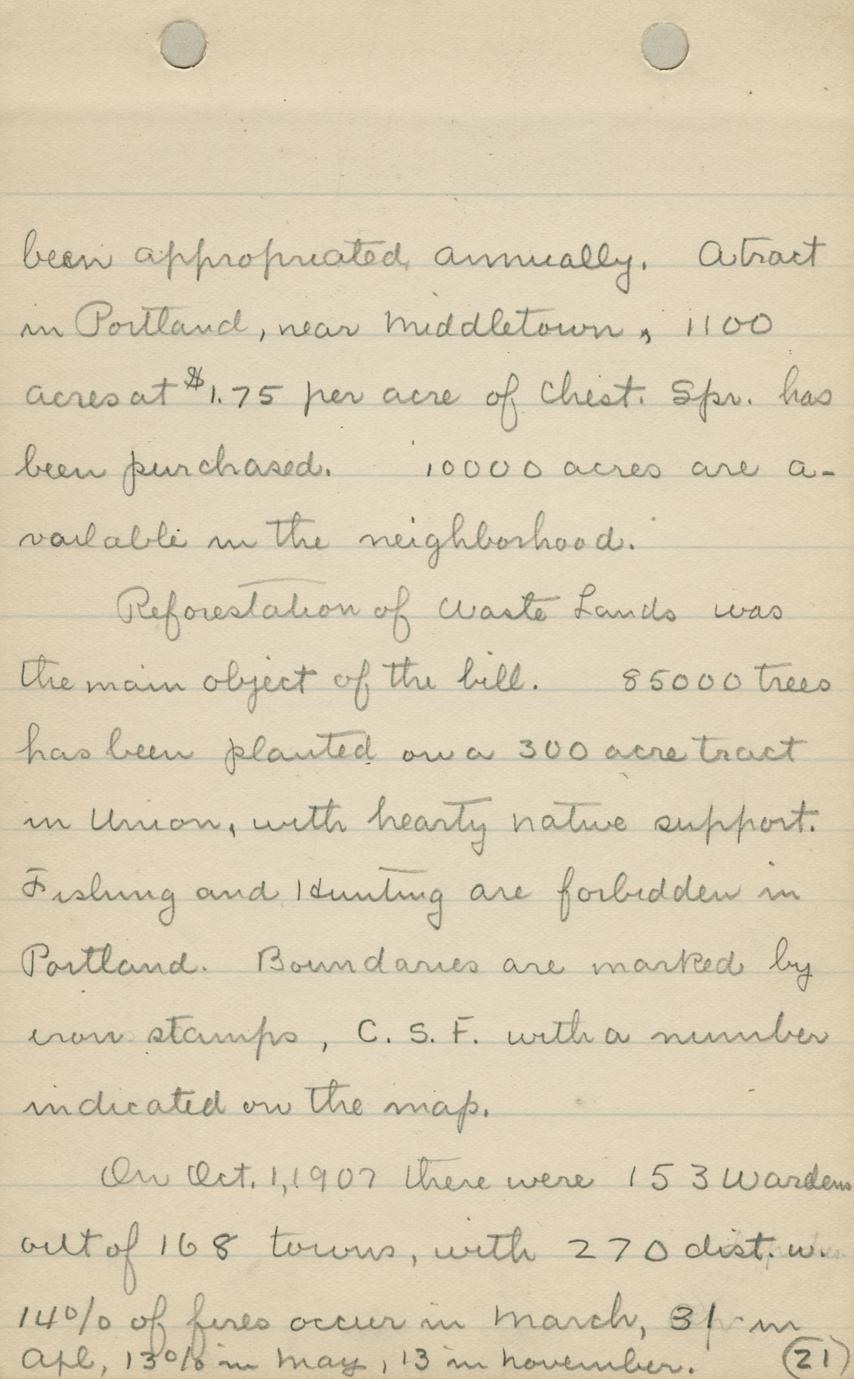 been appropriated annually. A tract
in Portland, near Middletown, 1100
acres at $1.75 per acre of Chest. Spr. has
been purchased. 10000 acres are a-
vailable in the neighborhood.
Reforestation of Waste Lands was
the main object of the bill. 85000 trees
has been planted on a 300 acre tract
in Union, with hearty native support.
Fishing and Hunting are forbidden in
Portland. Boundaries are marked by
iron stamps, C. S. F. with a number
indicated on the map.
On Oct. 1, 1907 there were 153 Wardens
out of 168 towns, with 270 dist. w.
14% of fires occur in March, 31 in
Apl, 13% in May, 13 in November. 21